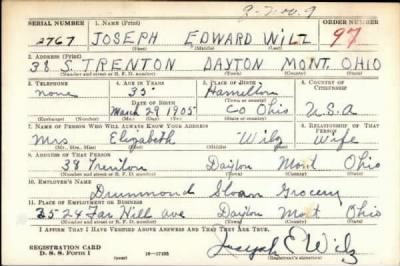 SERIAL NUMBER 1. NAME (Print) ORDER NUMBER
2767 JOSEPH EDWARD WILZ 97
(First) (Middle) (Last)
2. ADDRESS (Print)
38 S. TRENTON DAYTON MONT. OHIO
(Number and street or R. F. D. number) (Town) (County) (State)
3. TELEPHONE 4. AGE IN YEARS 5. PLACE OF BIRTH 6. COUNTRY OF CITIZENSHIP
none 35 Hamilton
DATE OF BIRTH (Town or county)
March 29 1905 Co Ohio U.S.A
(Exchange) (Number) (Mo.) (Day) (Yr.) (State or country)
7. NAME OF PERSON WHO WILL ALWAYS KNOW YOUR ADDRESS 8. RELATIONSHIP OF THAT PERSON
Mrs Elizabeth Wilz Wife
(Mr., Mrs., Miss) (First) (Middle) (Last)
9. ADDRESS OF THAT PERSON
38 Trenton Dayton Mont Ohio
(Number and street or R. F. D. number) (Town) (County) (State)
10. EMPLOYER'S NAME
Drummond Sloan Grocery
11. PLACE OF EMPLOYMENT OR BUSINESS
2524 Far Hill ave Dayton Mont Ohio
(Number and street or R. F. D. number) (Town) (County) (State)
I AFFIRM THAT I HAVE VERIFIED ABOVE ANSWERS AND THAT THEY ARE TRUE.
REGISTRATION CARD
D. S. S. FORM 1 16—17105 Joseph E Wilz